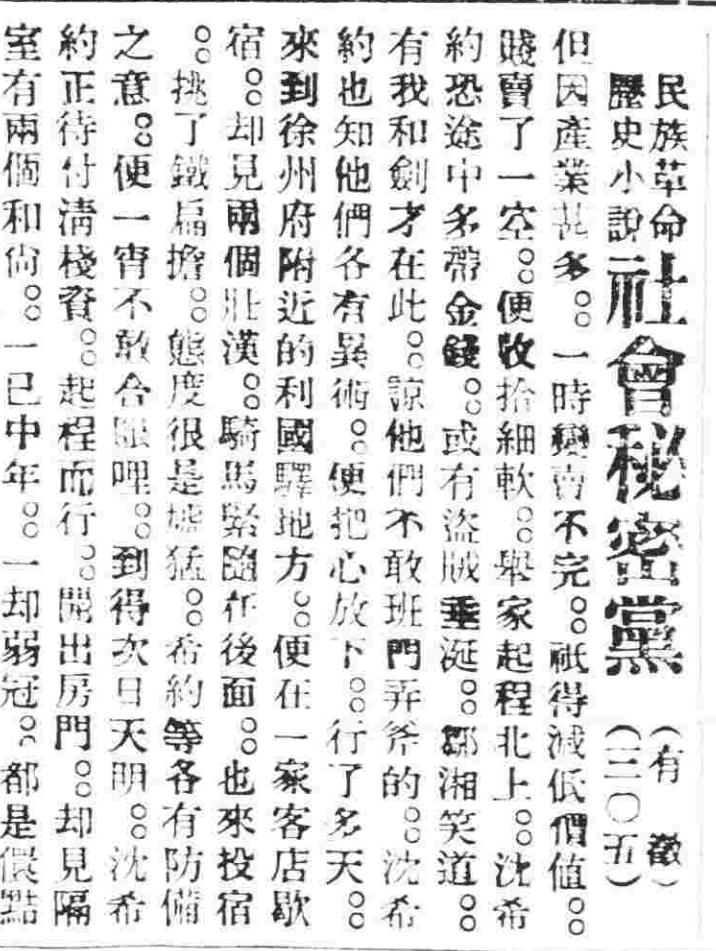 民族革命
歷史小說
社會秘密黨
（有徵）
（三〇五）
但因產業甚多。。一時變賣不完。。祇得減低價值。。
賤賣了一空。。便收拾細軟。。舉家起程北上。。沈希
約恐途中多帶金錢。。或有盜賊垂涎。。鄒湘笑道。。
有我和劍才在此。。諒他們不敢班門弄斧的。。沈希
約也知他們各有異術。。便把心放下。。行了多天。。
來到徐州府附近的利國驛地方。。便在一家客店歇
宿。。却見兩個壯漢。。騎馬緊隨在後面。。也來投宿
。。挑了鐵扁擔。。態度很是尷猛。。希約等各有防備
之意。。便一宵不敢合眼哩。。到得次日天明。。沈希
約正待付清棧資。。起程而行。。開出房門。。却見隔
室有兩個和尙。。一已中年。。一却弱冠。。都是儇點